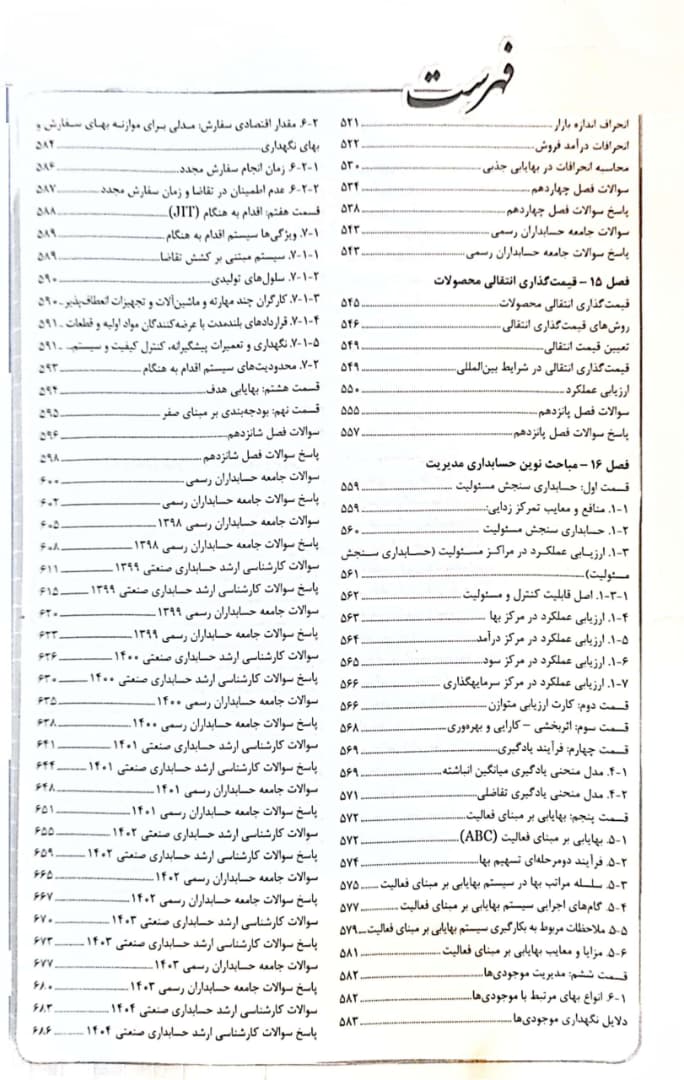 فهرست
انحراف اندازه بازار ..... ۵۲۱
انحرافات درآمد فروش ..... ۵۲۲
محاسبه انحرافات در بهایابی جذبی ..... ۵۳۰
سوالات فصل چهاردهم ..... ۵۳۴
پاسخ سوالات فصل چهاردهم ..... ۵۳۸
سوالات جامعه حسابداران رسمی ..... ۵۴۳
پاسخ سوالات جامعه حسابداران رسمی ..... ۵۴۳
فصل ۱۵ - قیمت‌گذاری انتقالی محصولات
قیمت‌گذاری انتقالی محصولات ..... ۵۴۵
روش‌های قیمت‌گذاری انتقالی ..... ۵۴۶
تعیین قیمت انتقالی ..... ۵۴۹
قیمت‌گذاری انتقالی در شرایط بین‌المللی ..... ۵۴۹
ارزیابی عملکرد ..... ۵۵۰
سوالات فصل پانزدهم ..... ۵۵۵
پاسخ سوالات فصل پانزدهم ..... ۵۵۷
فصل ۱۶ - مباحث نوین حسابداری مدیریت
قسمت اول: حسابداری سنجش مسئولیت ..... ۵۵۹
۱-۱. منافع و معایب تمرکز زدایی: ..... ۵۵۹
۱-۲. حسابداری سنجش مسئولیت ..... ۵۶۰
۱-۳. ارزیابی عملکرد در مراکز مسئولیت (حسابداری سنجش
مسئولیت) ..... ۵۶۱
۱-۳-۱. اصل قابلیت کنترل و مسئولیت ..... ۵۶۲
۱-۴. ارزیابی عملکرد در مرکز بها ..... ۵۶۳
۱-۵. ارزیابی عملکرد در مرکز درآمد ..... ۵۶۴
۱-۶. ارزیابی عملکرد در مرکز سود ..... ۵۶۵
۱-۷. ارزیابی عملکرد در مرکز سرمایهگذاری ..... ۵۶۶
قسمت دوم: کارت ارزیابی متوازن ..... ۵۶۶
قسمت سوم: اثربخشی - کارایی و بهره‌وری ..... ۵۶۸
قسمت چهارم: فرآیند یادگیری ..... ۵۶۹
۴-۱. مدل منحنی یادگیری میانگین انباشته ..... ۵۶۹
۴-۲. مدل منحنی یادگیری تفاضلی ..... ۵۷۱
قسمت پنجم: بهایابی بر مبنای فعالیت ..... ۵۷۲
۵-۱. بهایابی بر مبنای فعالیت (ABC) ..... ۵۷۲
۵-۲. فرآیند دومرحله‌ای تسهیم بها ..... ۵۷۴
۵-۳. سلسله مراتب بها در سیستم بهایابی بر مبنای فعالیت ..... ۵۷۵
۵-۴. گام‌های اجرایی سیستم بهایابی بر مبنای فعالیت ..... ۵۷۷
۵-۵. ملاحظات مربوط به بکارگیری سیستم بهایابی بر مبنای فعالیت ..... ۵۷۹
۵-۶. مزایا و معایب بهایابی بر مبنای فعالیت ..... ۵۸۱
قسمت ششم: مدیریت موجودی‌ها ..... ۵۸۲
۶-۱. انواع بهای مرتبط با موجودی‌ها ..... ۵۸۲
دلایل نگهداری موجودی‌ها ..... ۵۸۳
۶-۲. مقدار اقتصادی سفارش: مدلی برای موازنه بهای سفارش و
بهای نگهداری ..... ۵۸۴
۶-۲-۱. زمان انجام سفارش مجدد ..... ۵۸۶
۶-۲-۲. عدم اطمینان در تقاضا و زمان سفارش مجدد ..... ۵۸۷
قسمت هفتم: اقدام به هنگام (JIT) ..... ۵۸۸
۷-۱. ویژگی‌ها سیستم اقدام به هنگام ..... ۵۸۹
۷-۱-۱. سیستم مبتنی بر کشش تقاضا ..... ۵۸۹
۷-۱-۲. سلول‌های تولیدی ..... ۵۹۰
۷-۱-۳. کارگران چند مهارته و ماشین‌آلات و تجهیزات انعطاف‌پذیر ..... ۵۹۰
۷-۱-۴. قراردادهای بلندمدت با عرضه‌کنندگان مواد اولیه و قطعات ..... ۵۹۱
۷-۱-۵. نگهداری و تعمیرات پیشگیرانه، کنترل کیفیت و سیستم ..... ۵۹۱
۷-۲. محدودیت‌های سیستم اقدام به هنگام ..... ۵۹۳
قسمت هشتم: بهایابی هدف ..... ۵۹۴
قسمت نهم: بودجه‌بندی بر مبنای صفر ..... ۵۹۵
سوالات فصل شانزدهم ..... ۵۹۶
پاسخ سوالات فصل شانزدهم ..... ۵۹۸
سوالات جامعه حسابداران رسمی ..... ۶۰۰
پاسخ سوالات جامعه حسابداران رسمی ..... ۶۰۲
سوالات جامعه حسابداران رسمی ۱۳۹۸ ..... ۶۰۵
پاسخ سوالات جامعه حسابداران رسمی ۱۳۹۸ ..... ۶۰۸
سوالات کارشناسی ارشد حسابداری صنعتی ۱۳۹۹ ..... ۶۱۱
پاسخ سوالات کارشناسی ارشد حسابداری صنعتی ۱۳۹۹ ..... ۶۱۵
سوالات جامعه حسابداران رسمی ۱۳۹۹ ..... ۶۲۰
پاسخ سوالات جامعه حسابداران رسمی ۱۳۹۹ ..... ۶۲۳
سوالات کارشناسی ارشد حسابداری صنعتی ۱۴۰۰ ..... ۶۲۶
پاسخ سوالات کارشناسی ارشد حسابداری صنعتی ۱۴۰۰ ..... ۶۳۰
سوالات جامعه حسابداران رسمی ۱۴۰۰ ..... ۶۳۵
پاسخ سوالات جامعه حسابداران رسمی ۱۴۰۰ ..... ۶۳۸
سوالات کارشناسی ارشد حسابداری صنعتی ۱۴۰۱ ..... ۶۴۱
پاسخ سوالات کارشناسی ارشد حسابداری صنعتی ۱۴۰۱ ..... ۶۴۴
سوالات جامعه حسابداران رسمی ۱۴۰۱ ..... ۶۴۸
پاسخ سوالات جامعه حسابداران رسمی ۱۴۰۱ ..... ۶۵۱
سوالات کارشناسی ارشد حسابداری صنعتی ۱۴۰۲ ..... ۶۵۵
پاسخ سوالات کارشناسی ارشد حسابداری صنعتی ۱۴۰۲ ..... ۶۵۹
سوالات جامعه حسابداران رسمی ۱۴۰۲ ..... ۶۶۵
پاسخ سوالات جامعه حسابداران رسمی ۱۴۰۲ ..... ۶۶۷
سوالات کارشناسی ارشد حسابداری صنعتی ۱۴۰۳ ..... ۶۷۰
پاسخ سوالات کارشناسی ارشد حسابداری صنعتی ۱۴۰۳ ..... ۶۷۳
سوالات جامعه حسابداران رسمی ۱۴۰۳ ..... ۶۷۷
پاسخ سوالات جامعه حسابداران رسمی ۱۴۰۳ ..... ۶۸۰
سوالات کارشناسی ارشد حسابداری صنعتی ۱۴۰۴ ..... ۶۸۳
پاسخ سوالات کارشناسی ارشد حسابداری صنعتی ۱۴۰۴ ..... ۶۸۶